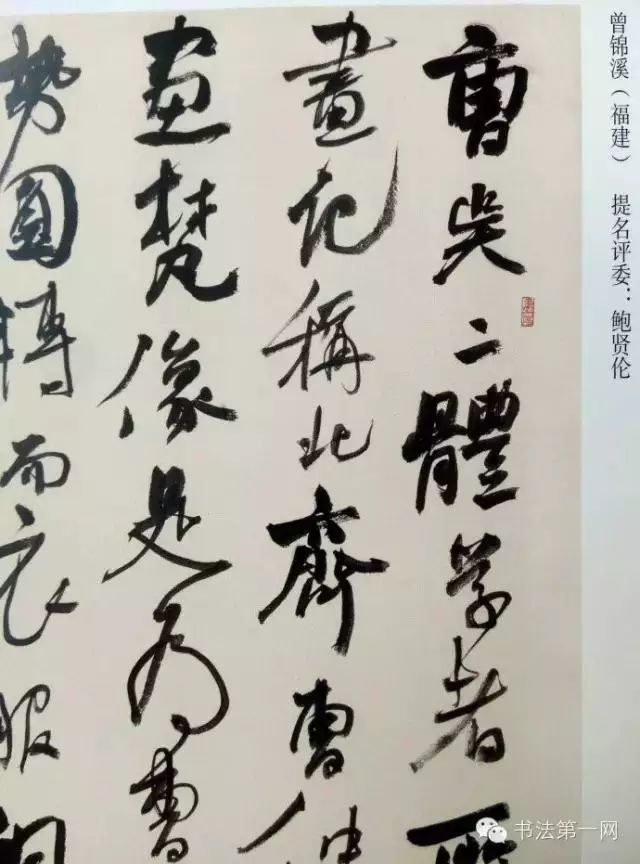 曹吴二體學者所
畫記稱北齊曹仲
畫梵像是為曹
勢圓轉而衣服稠
曾锦溪（福建） 提名评委：鲍贤伦
书法第一网